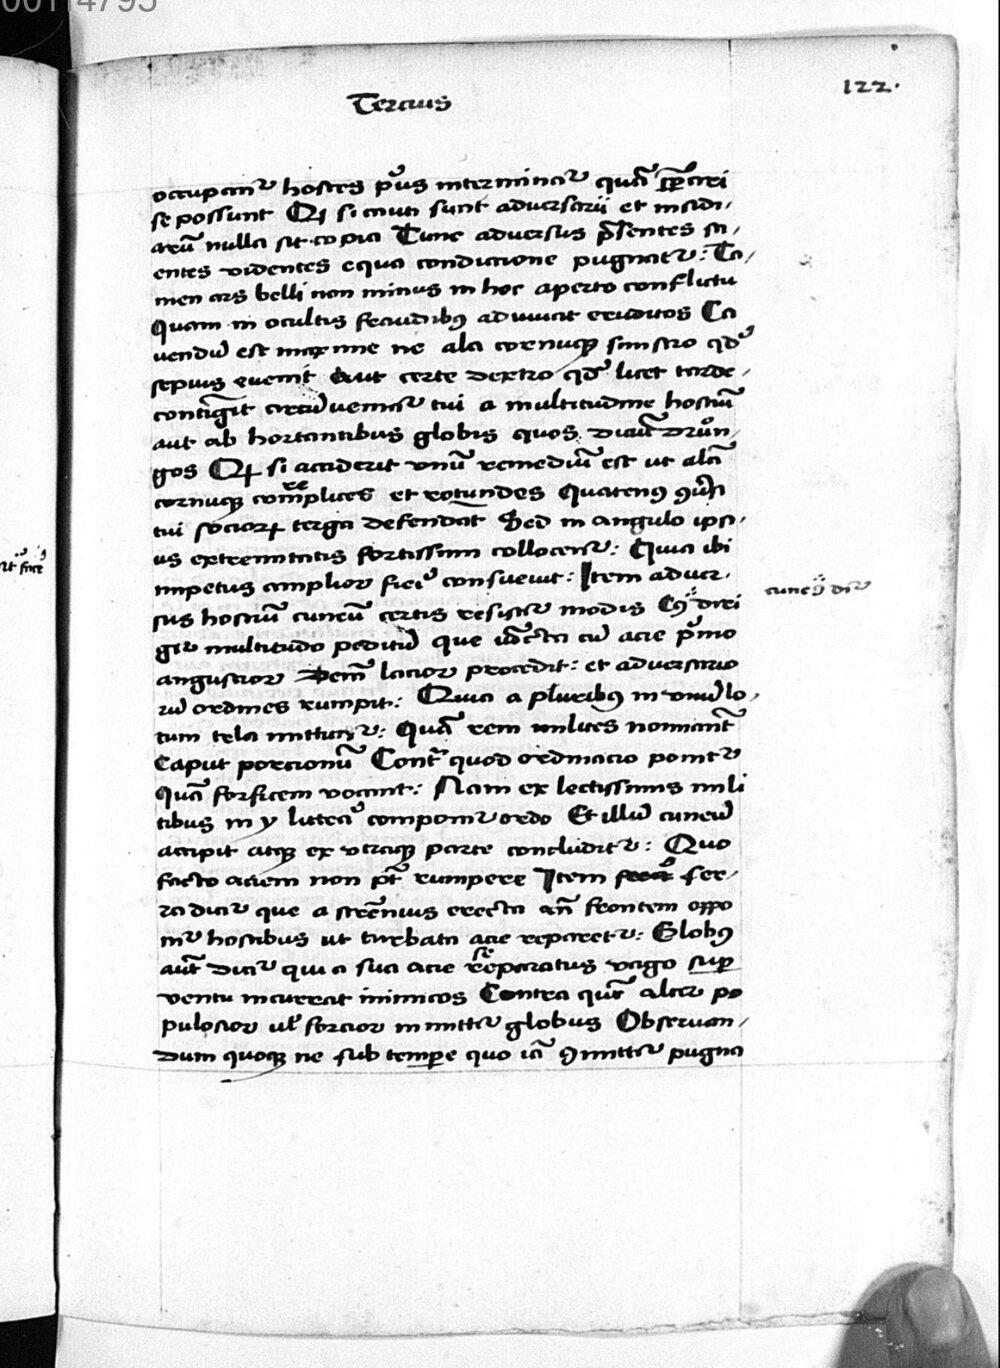 00114795
122.
Tercius
occupant᷑ hostes pͥus intermina᷑ quā p̄pari
se possunt Qͥ si cauti sunt adversarii et insidi,
arū nulla sit copia Tunc adversus p̄sentes sci,
entes videntes equa condicione pugnat᷑: Ta,
men ars belli non minus in hoc aperto conflictu
Quam in ocultis fraudibꝰ adiuvat eruditos Ca
vendū est maxime ne ala cornuqꝫ sinistro qd̕
sepius evenit aut certe dextro qd̕ licet tarde,
contigit circūveniat᷑ tui a multitudine hostiū
aut ab hortantibus globis quos dicūt drūn,
gos Qͥ si acciderit vnū remediū est ut alā
cornuqꝫ complices et rotundes Quatenꝰ ꝯv̄si
tui socioꝝ terga defendāt Sed in angulo ipsi,
us extremitatis fortissimi collocent᷑: Quia ibi
impetus amplior fieͥ consuevit: Item adver,
sus hostiū cuneū certis resistit᷑ modis Cꝰ dici
git᷑ multitudo peditū que iūcta cū acie pͥmo
angustior Deīn lacior procedit: et adversario
rū ordines rumpit: Quia a pluribꝰ in vnū lo,
cum tela mittunt᷑: Quā rem milites nominant
caput porcionū Contͣ quod ordinacio ponit᷑
Quā forficem vocant: Nam ex lectissimis mili
tibus in y litteᷓ componit᷑ ordo Et illū cuneū
accipit atqꝫ ex utraqꝫ parte concludit᷑: Quo
facto aciem non pt̄ rumpere Item ser,
ra dicit᷑ que a strēnuis erecta añ frontem oppo
nit᷑ hostibus ut turbata acie reparet᷑: Globꝰ
aūt dicit᷑ qui a sua acie separatus vago suꝑ
ventu incurrat inimicos Contra quē alter po
pulosior vl̕ forcior in mittit᷑ globus Observan,
dum quoqꝫ ne sub tempore quo iā ꝯmittit᷑ pugna
cuneꝰ dit᷑